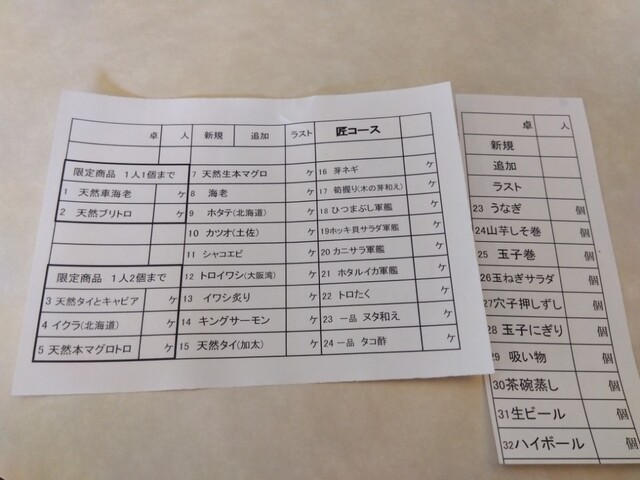 卓 人 新規 追加 ラスト 匠コース
限定商品 1人1個まで
1 天然車海老 ケ
2 天然ブリトロ ケ
限定商品 1人2個まで
3 天然タイとキャビア ケ
4 イクラ(北海道) ケ
5 天然本マグロトロ ケ
7 天然生本マグロ ケ
8 海老 ケ
9 ホタテ(北海道) ケ
10 カツオ(土佐) ケ
11 シャコエビ ケ
12 トロイワシ(大阪湾) ケ
13 イワシ炙り ケ
14 キングサーモン ケ
15 天然タイ(加太) ケ
16 芽ネギ ケ
17 筍握り(木の芽和え) ケ
18 ひつまぶし軍艦 ケ
19ホッキ貝サラダ軍艦 ケ
20 カニサラ軍艦 ケ
21 ホタルイカ軍艦 ケ
22 トロたく ケ
23 一品 ヌタ和え ケ
24 一品 タコ酢 ケ
卓 人
新規
追加
ラスト
23 うなぎ 個
24山芋しそ巻 個
25 玉子巻 個
26玉ねぎサラダ 個
27穴子押しずし 個
28 玉子にぎり 個
29 吸い物 個
30茶碗蒸し 個
31生ビール 個
32ハイボール 個